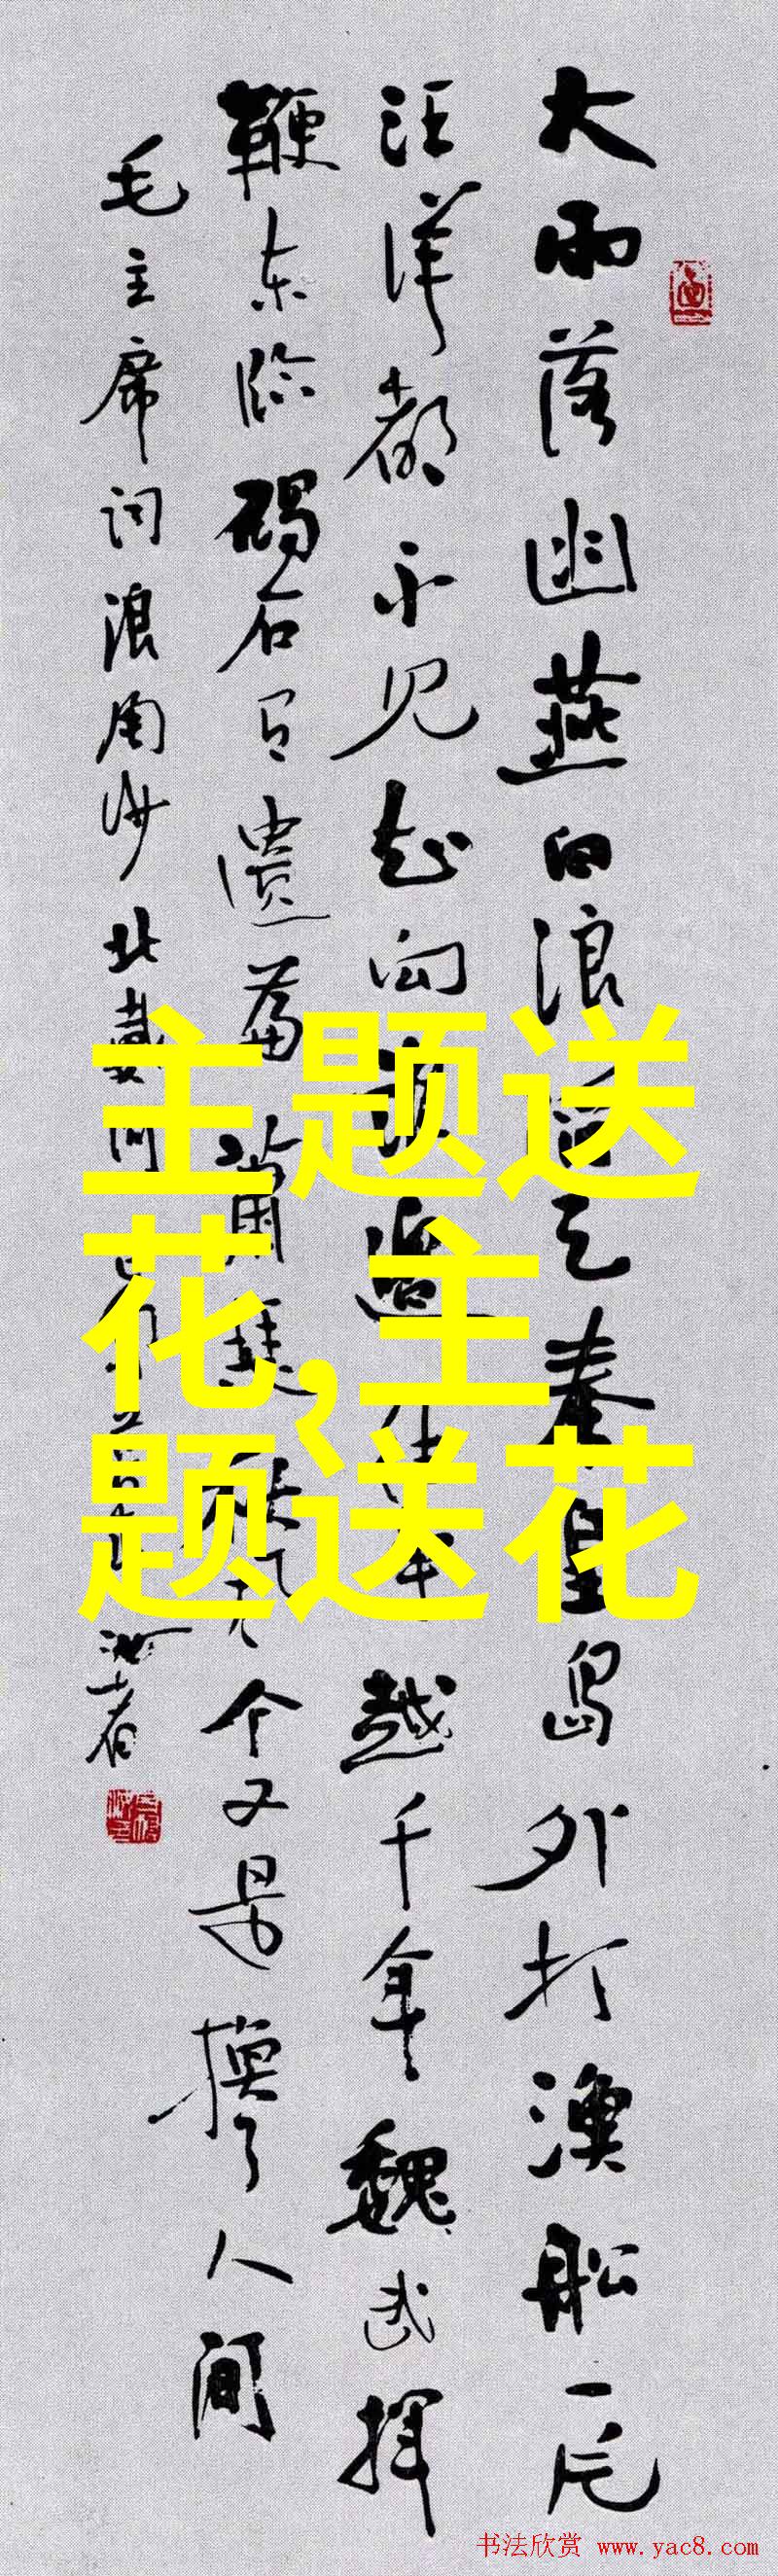 大雨落幽燕白浪滔天秦皇岛外打漁船一片
汪洋都不见知向谁邊往事越千年魏武揮
鞭东临碣石有遗篇萧瑟秋风今又是换了人间
毛主席词浪淘沙北戴河
主题送
花,主
题送花
书法欣赏 www.yac8.com